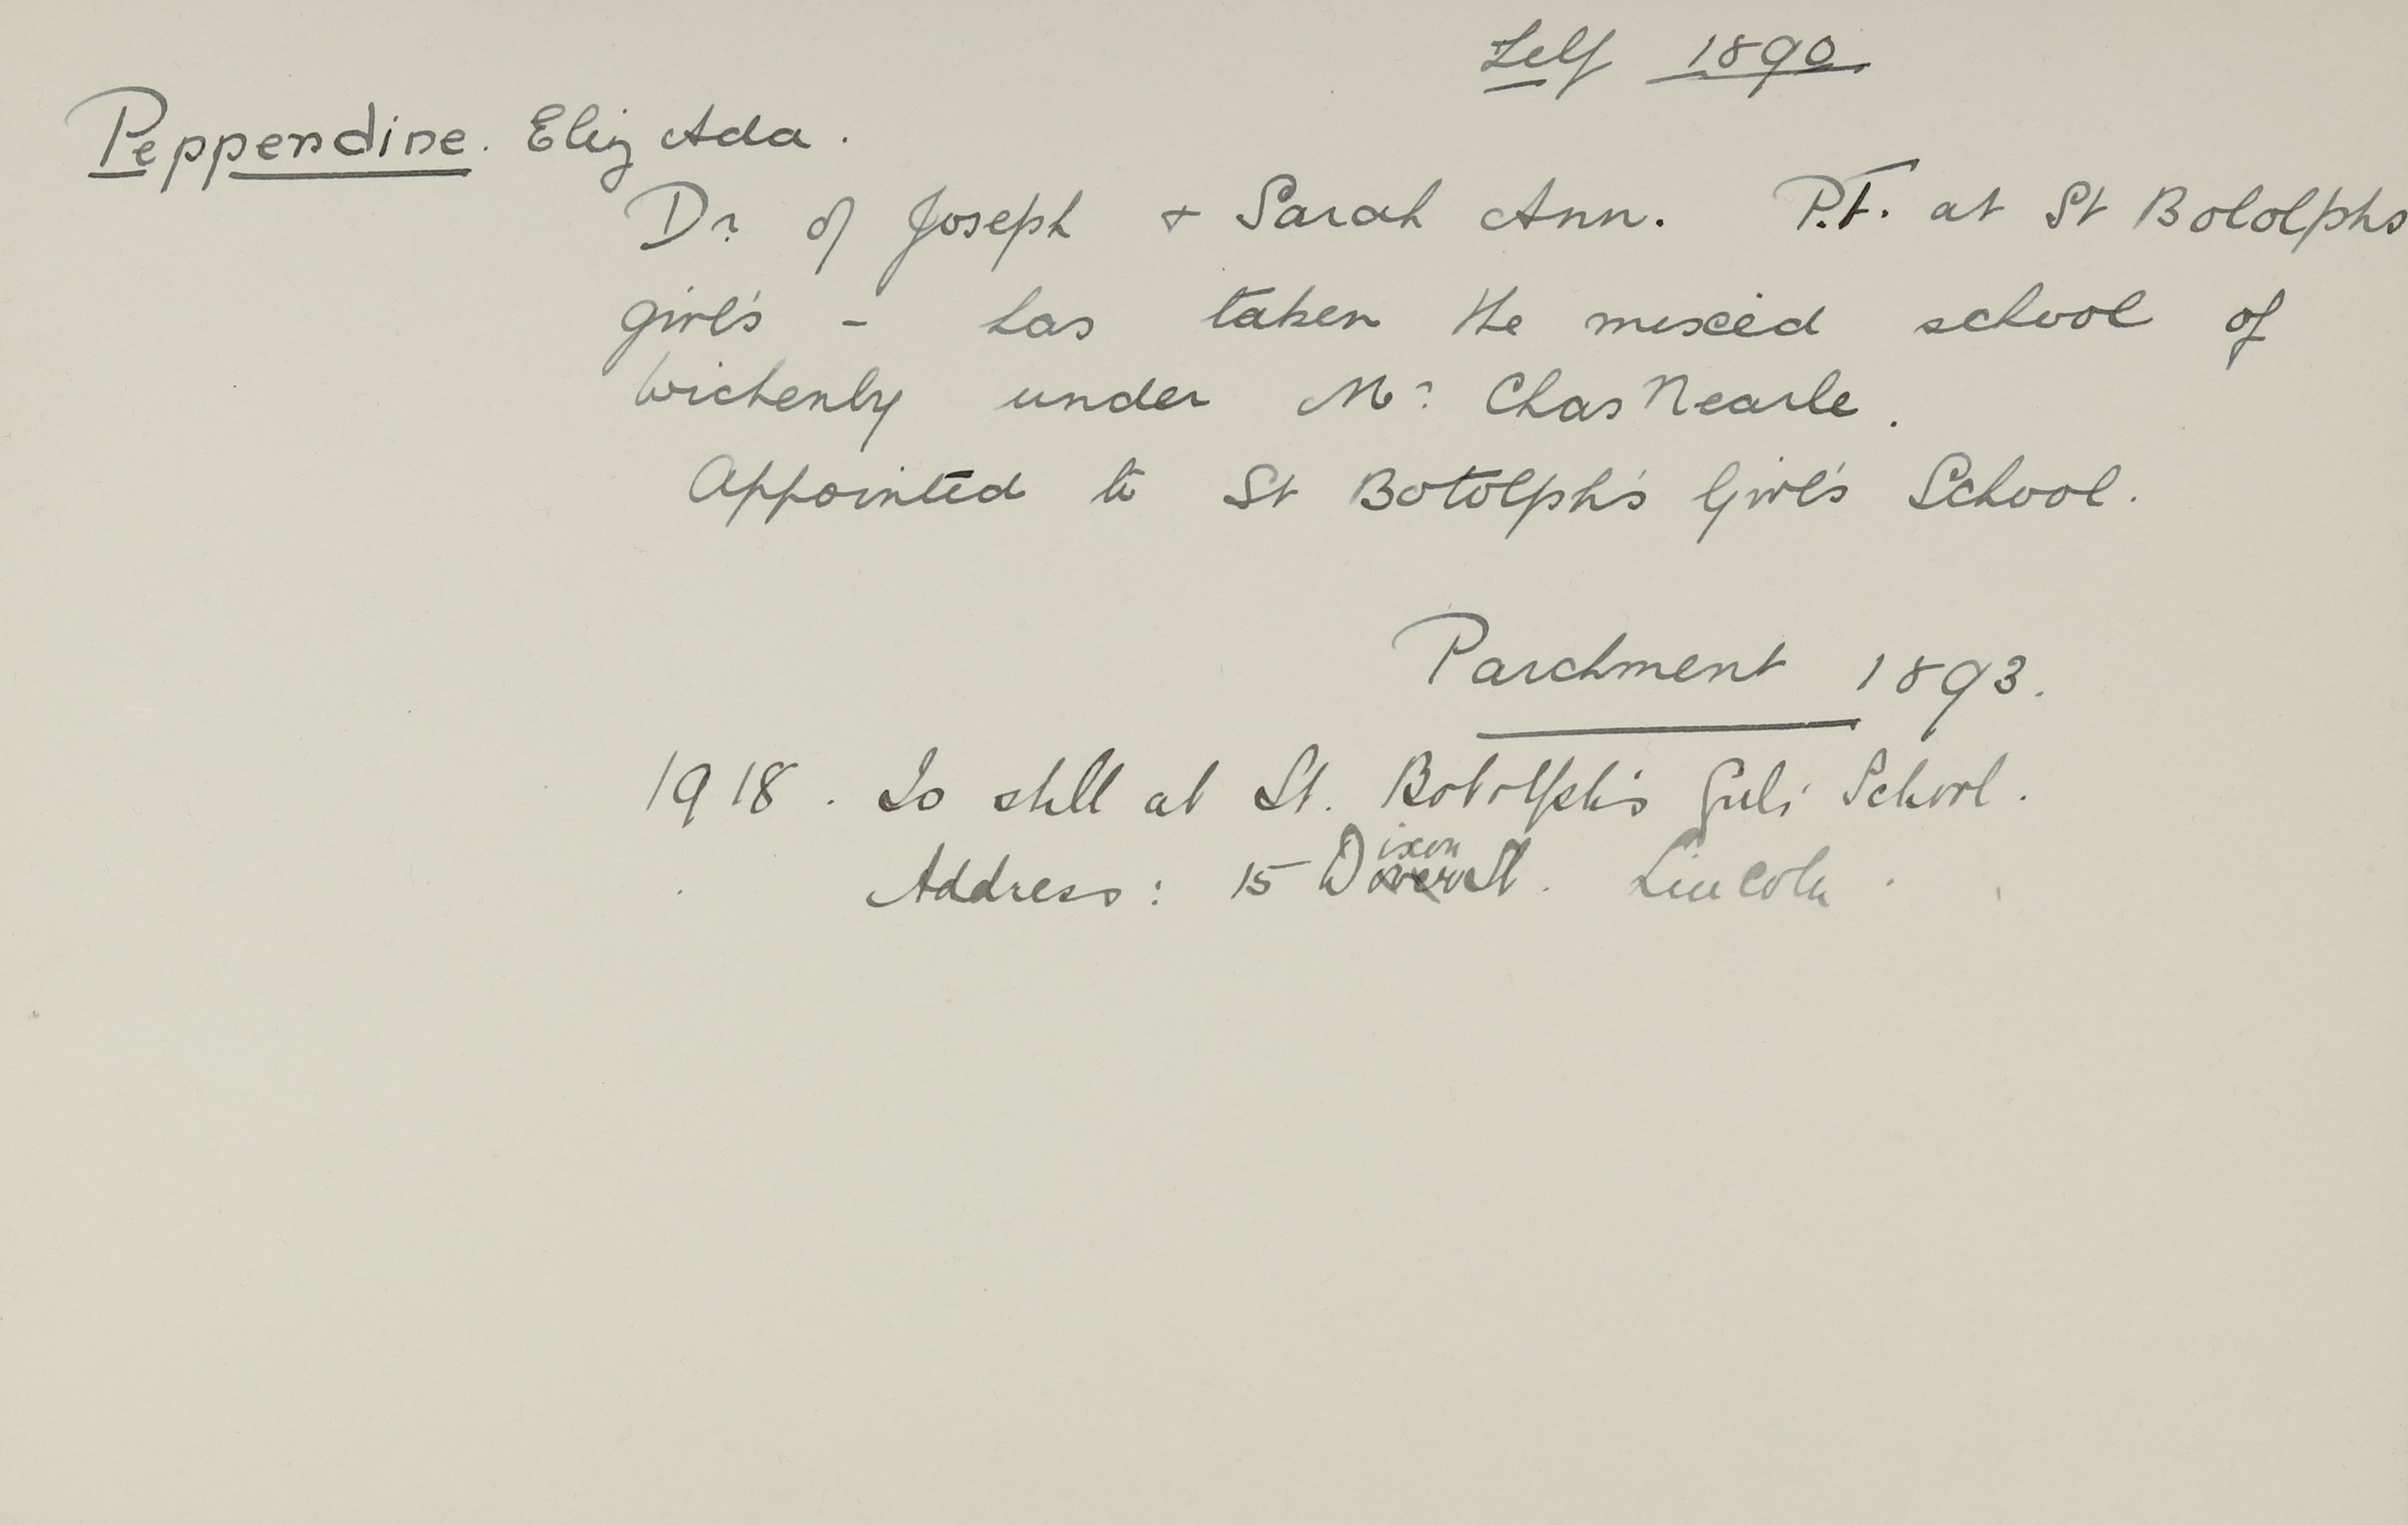 Left 1890
Peppendine. Eliz Ada.
Dr. of Joseph & Sarah Ann. P.T. at St Botolphs
girl's - has taken the mixed school of
Wickenby under Mr. Chas Nearle.
Appointed to St Botolph's Girl's School.
Parchment 1893.
1918. Is still at St. Botolph's Girls School.
Address: 15 Dixon St. Lincoln.